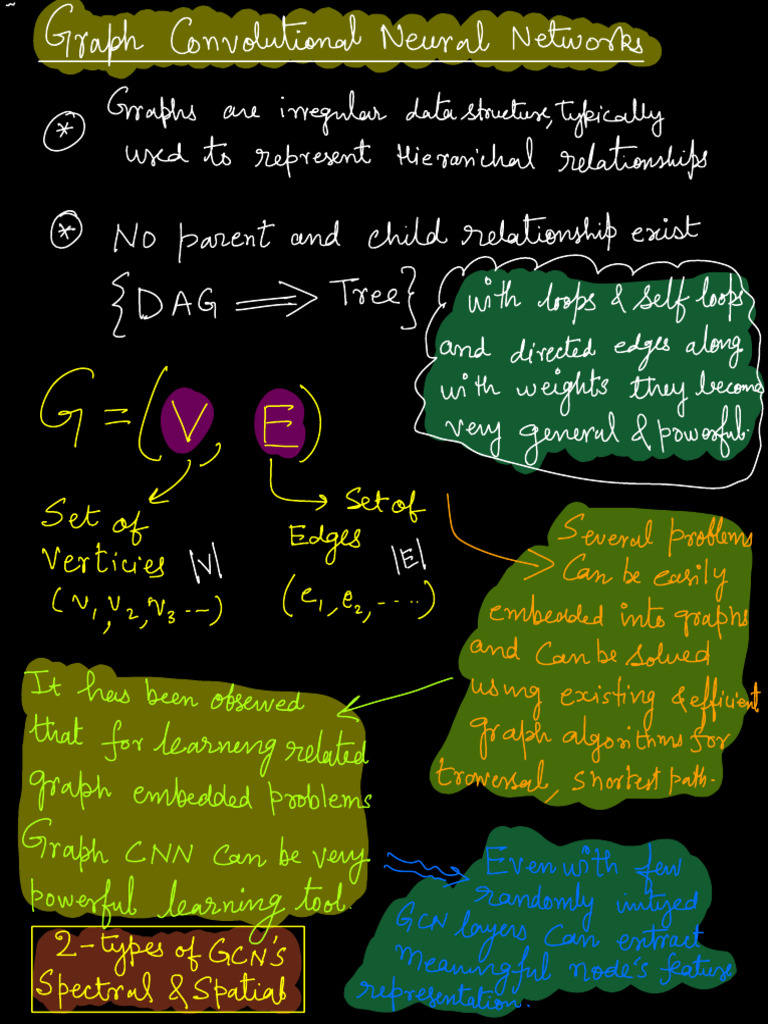 Graph Convolutional Neural Networks
* Graphs are irregular data structure, typically
used to represent Hierarichal relationships
* No parent and child relationship exist
{DAG ⟹ Tree}
with loops & self loops
and directed edges along
with weights they become
very general & powerful.
G = (V, E)
Set of
Verticies |V|
(v1, v2, v3 ---)
Set of
Edges |E|
(e1, e2, ....)
Several problems
Can be easily
embedded into graphs
and can be solved
using existing & efficient
graph algorithms for
traversal, shortest path.
It has been observed
that for learning related
graph embedded problems
Graph CNN can be very
powerful learning tool.
Even with few
randomly intized
GCN layers can extract
meaningful node's feature
representation.
2-types of GCN's
Spectral & Spatial